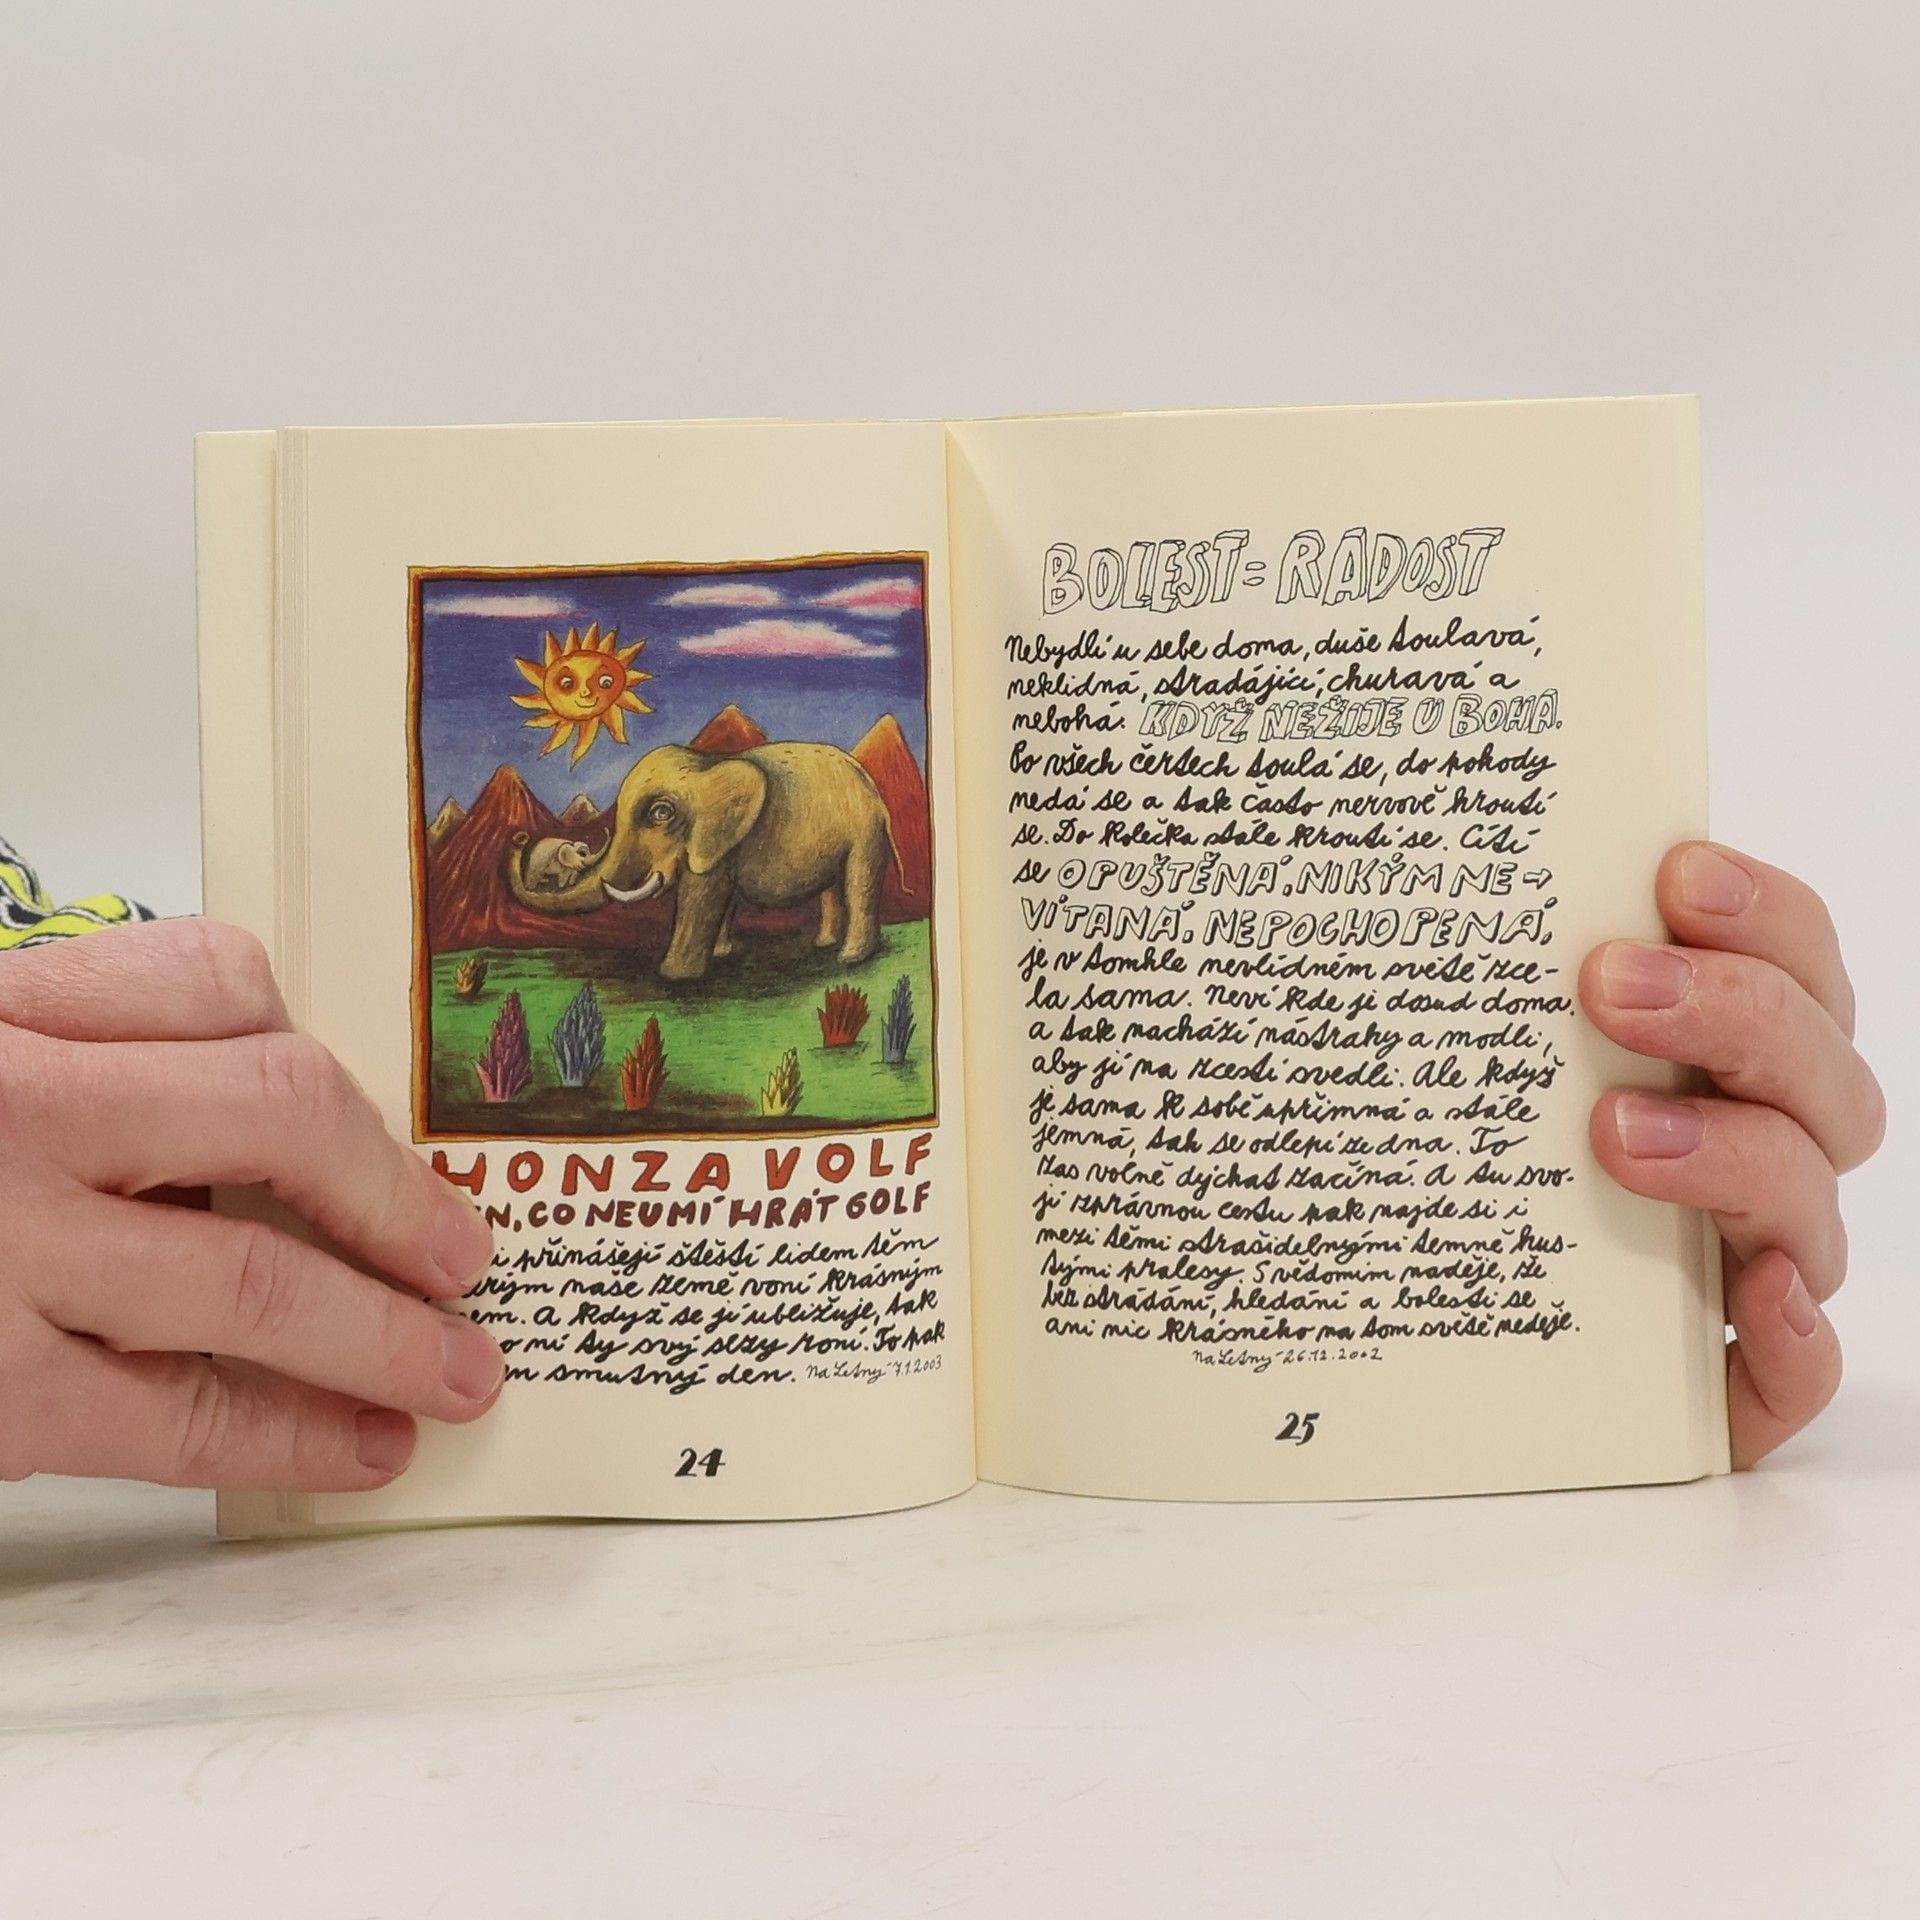 HONZA VOLF
CO NEUMÍ HRÁT GOLF
přinášejí štěstí lidem těm
naše země voní krásným
A když se jí ubližuje, tak
ní ty svý slzy roní. To pak
smutný den. Na Letný 7.1.2003
24
BOLEST = RADOST
Nebydlí u sebe doma, duše toulavá,
neklidná, strádající, churavá a
nebohá. KDYŽ NEŽIJE U BOHA.
Po všech čertech toulá se, do pohody
nedá se a tak často nervově hroutí
se. Do kolečka stále kroutí se. Cítí
se OPUŠTĚNÁ, NIKÝM NE→
VÍTANÁ, NEPOCHOPENÁ,
je v tomhle nevlídném světě zce-
la sama. Neví kde je dosud doma.
a tak nachází nástrahy a modli,
aby jí na zcestí svedli. Ale když
je sama k sobě upřímná a stále
jemná, tak se odlepí ze dna. To
zas volně dýchat začíná. A tu svo-
jí zprávnou cestu pak najde si i
mezi těmi strašidelnými temně hus-
tými pralesy. S vědomím naděje, že
bez strádání, hledání a bolesti se
ani nic krásného na tom světě neděje.
Na Letný 26.12.2002
25